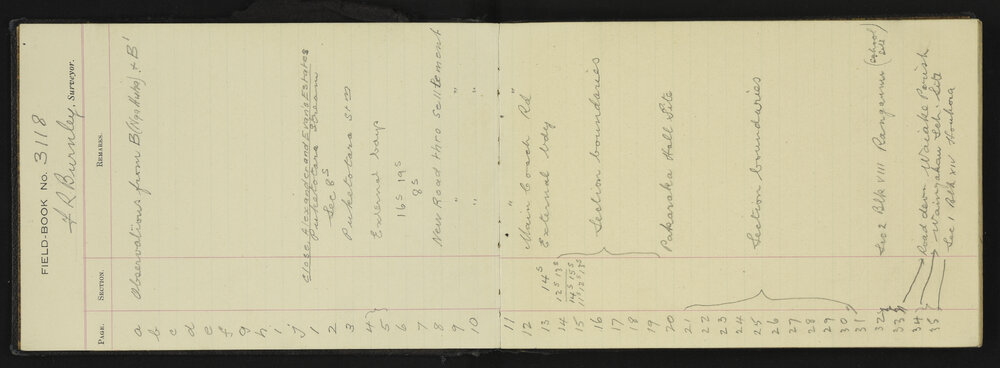 FIELD-BOOK No. 3118
R Burnley, Surveyor.
PAGE. SECTION. REMARKS.
a Observations from B (Nga Huha) & B'
b
c
d
e
f
g
h
i
j Close Alexander and Evans Estates
1 Puketotara Stream
2 Sec 8S
3 Puketotara Stm
4
5 External bdys
6 16S 19S
7 8S
8 New Road thro Settlement
9 " "
10 " "
11 " "
12 Main Coach Rd
13 14S External bdy
14 12S 13S
15 14S 15S
11S 12S 13S
16 Section boundaries
17
18
19
20 Pakaraka Hall Site
21
22
23
24
25 Section boundaries
26
27
28
29
30
31
32 Sec 2 Blk VIII Rangaunu (School Site)
33
34 Road devn Waiake Parish
35 Waingakau Sch. Site
Sec 1 Blk XIV Houhora